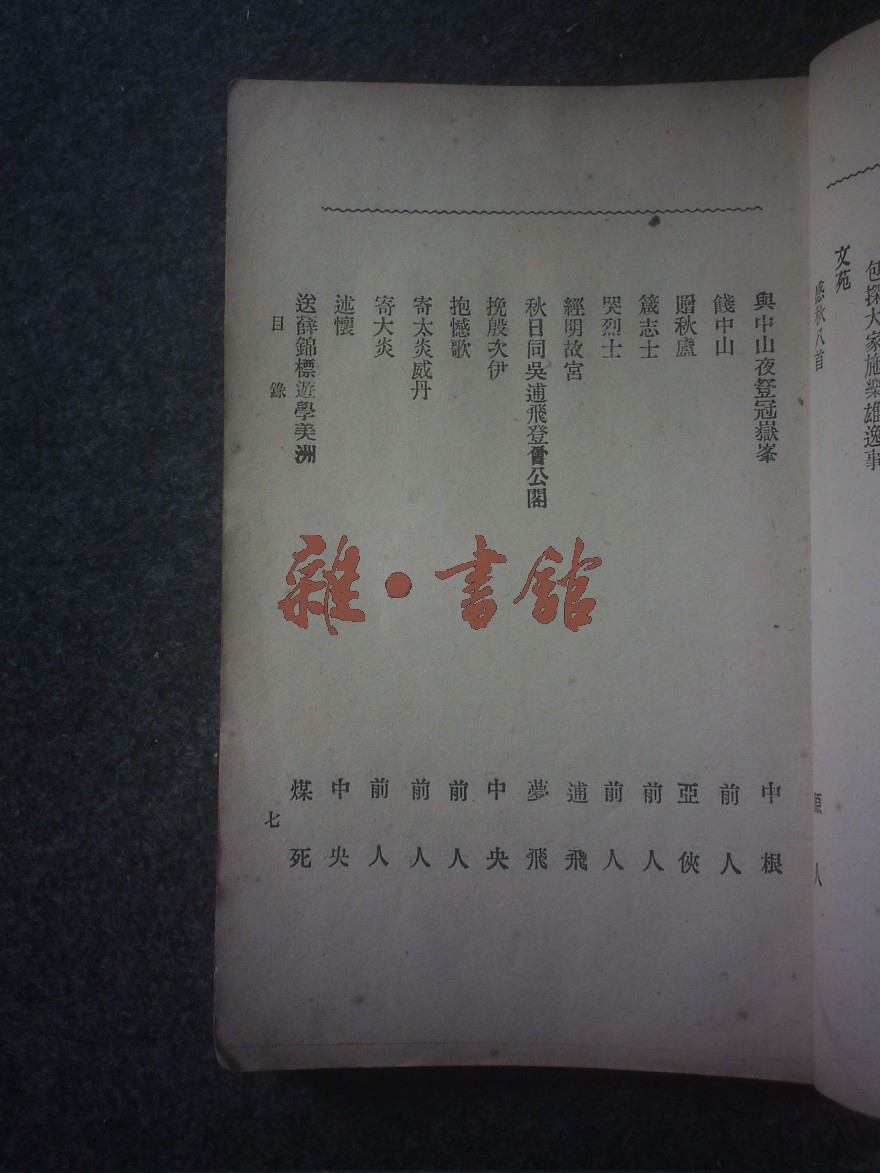 包探大家施樂雄逸事
文苑
感秋八首 原人
與中山夜登冠嶽峯 中根
餞中山 前人
贈秋廬 亞俠
箴志士 前人
哭烈士 前人
經明故宮 逋飛
秋日同吳逋飛登曾公閣 夢飛
挽殷次伊 中央
抱憾歌 前人
寄太炎威丹 前人
寄大炎 前人
述懷 中央
送薛錦標遊學美洲 煤死
目錄 七
雜·書館